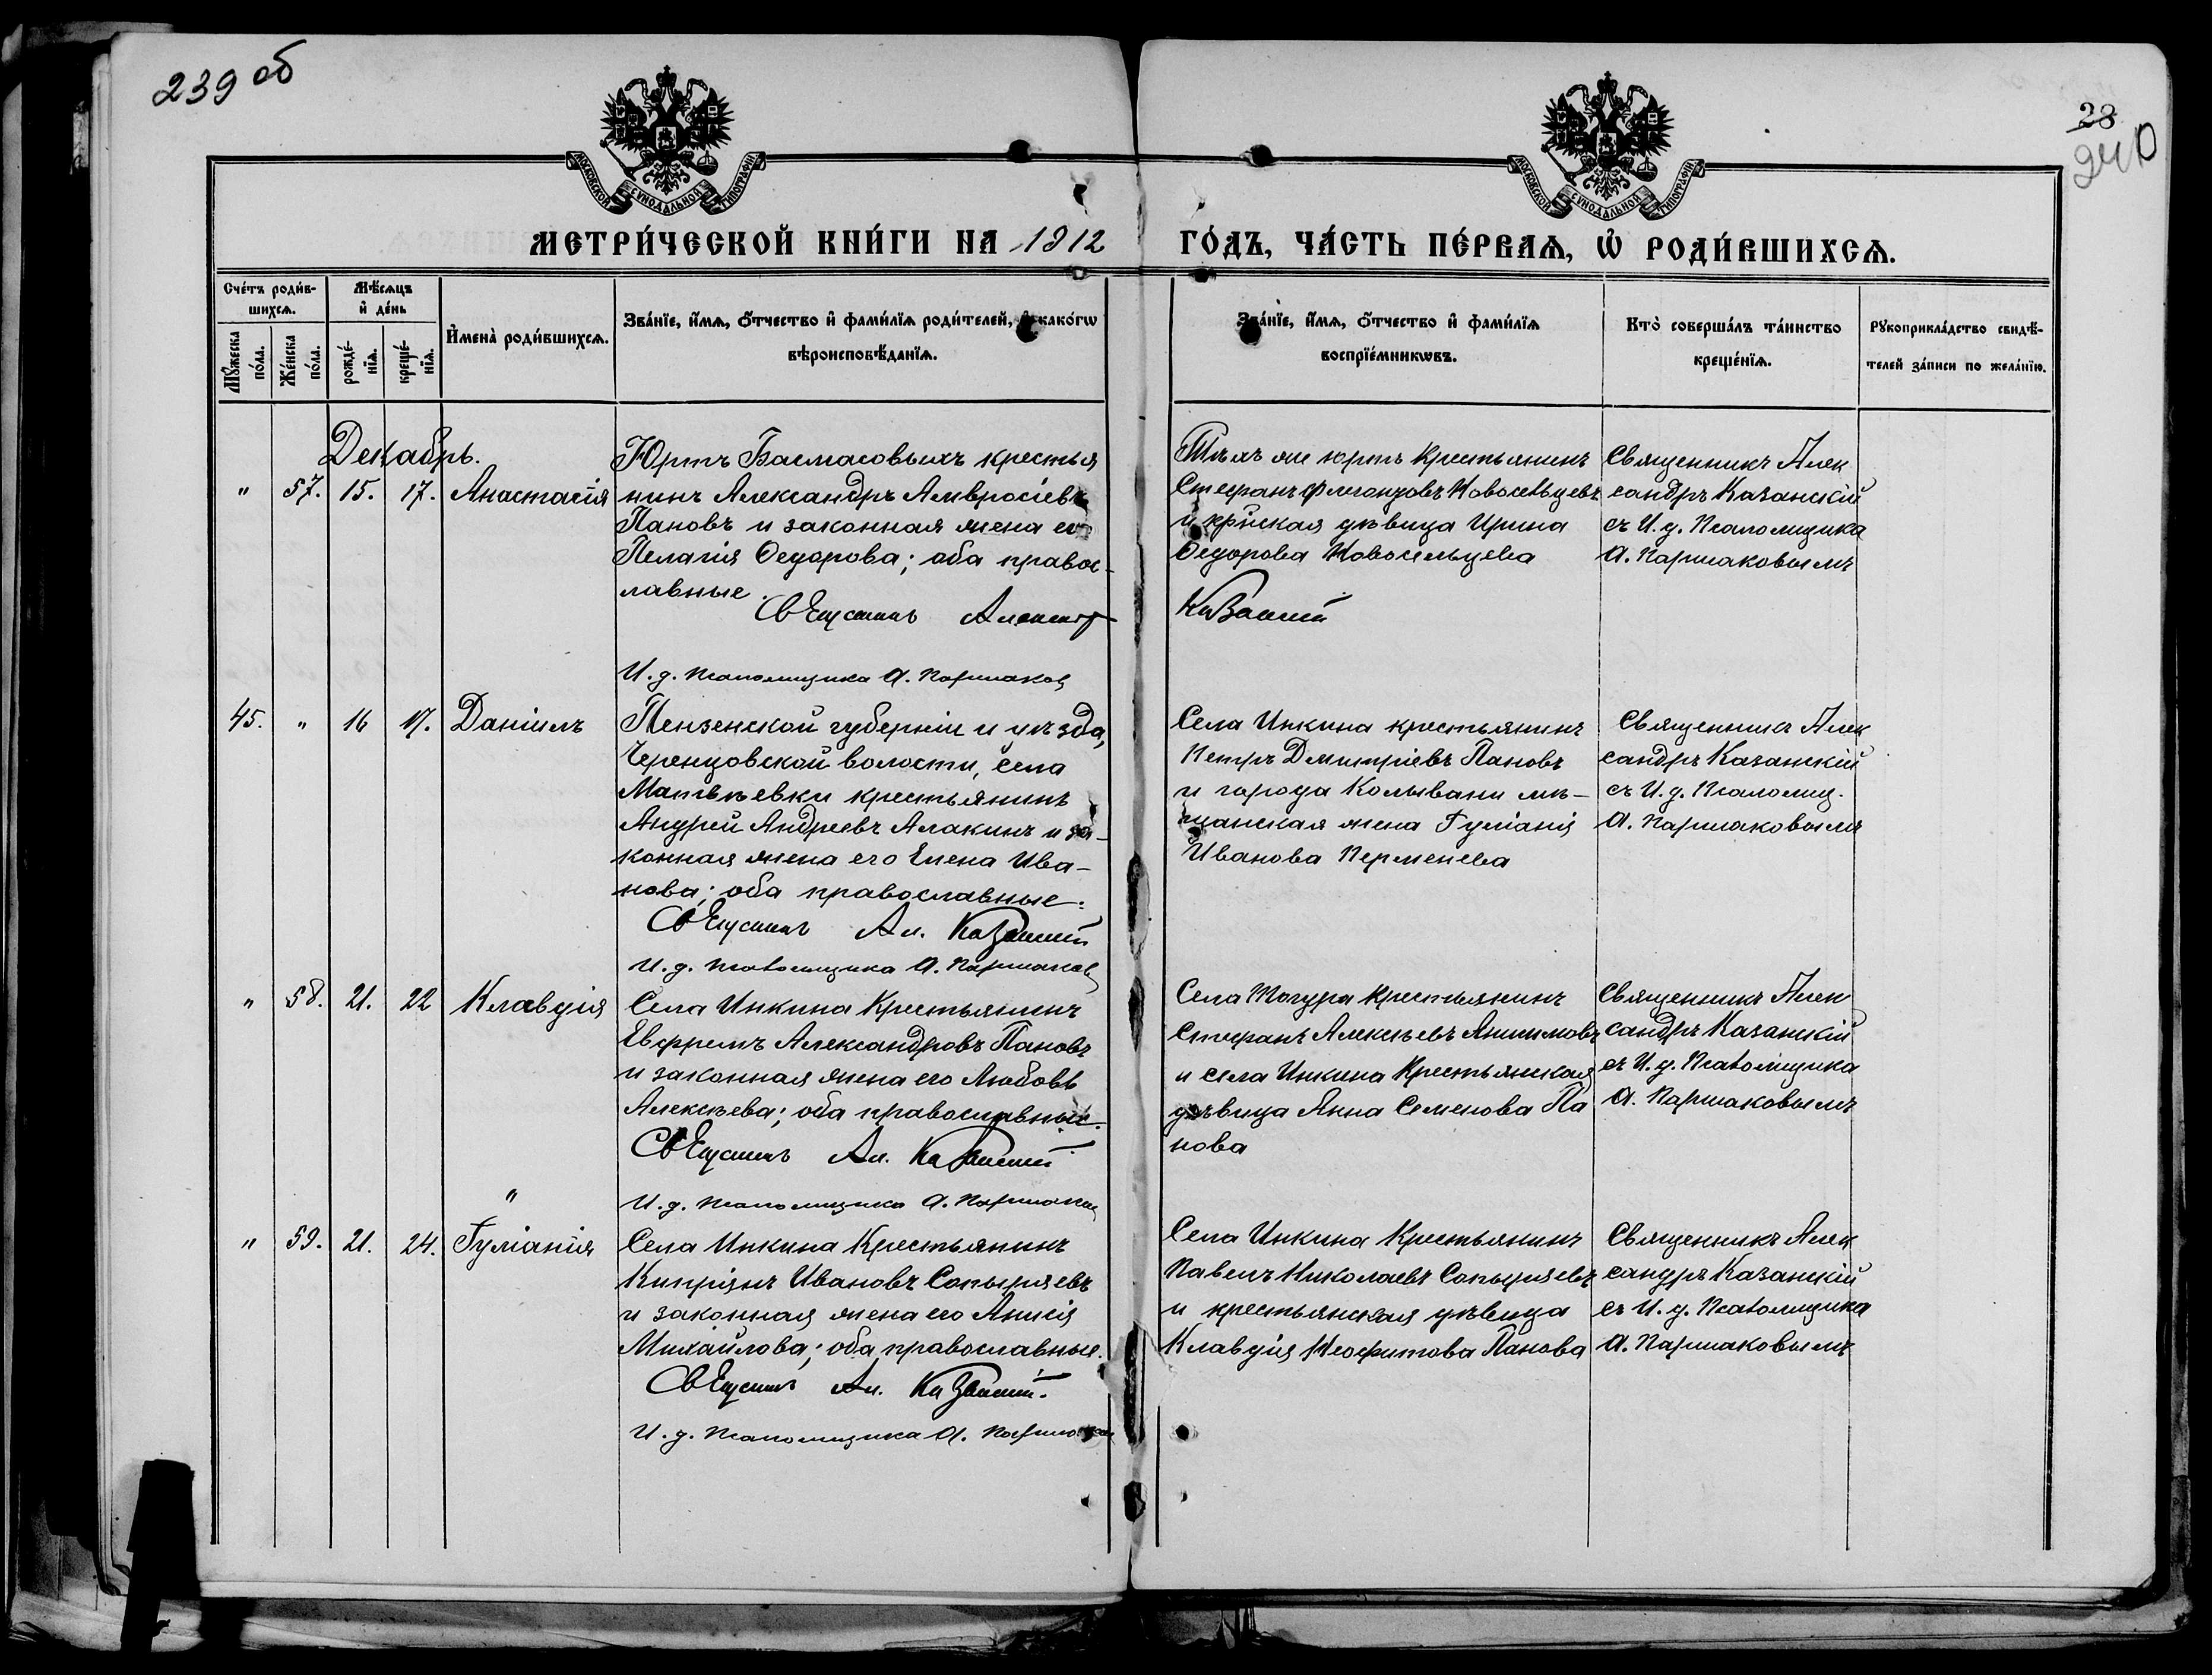 239 об
28
240
МОСКОВСКОЙ СѴНОДАЛЬНОЙ ТИПОГРАФІИ
МОСКОВСКОЙ СѴНОДАЛЬНОЙ ТИПОГРАФІИ
МЕТРИ́ЧЕСКОЙ КНИ́ГИ НА 1912 ГО́ДЪ, ЧА́СТЬ ПЕ́РВАѦ, Ѡ҆ РОДИ́ВШИХСѦ.
Сче́тъ роди́в-
шихсѧ.
Мꙋ́жеска
по́ла.
Же́нска
по́ла.
Мѣ́сѧцъ
и҆ де́нь
рожде́-
нїѧ.
креще́-
нїѧ.
И҆мена̀ роди́вшихсѧ.
Зва́нїе, и҆́мѧ, ѻ҆́тчество и҆ фами́лїѧ роди́телей, и҆ како́гѡ
вѣроисповѣ́данїѧ.
Зва́нїе, и҆́мѧ, ѻ҆́тчество и҆ фами́лїѧ
воспрїе́мникѡвъ.
Кто̀ соверша́лъ та́инство
креще́нїѧ.
Рꙋкоприкла́дство свидѣ́-
телей за́писи по жела́нїю.
Декабрь.
" 57. 15. 17. Анастасія
Юртъ Басмасовыхъ крестья
нинъ Александръ Амвросіевъ
Пановъ и законная жена его
Пелагія Ѳедорова; оба правос-
лавные.
Священникъ Александръ Казанскій
И. д. псаломщика А. Паршаковъ
Тѣхъ же юртъ крестьянинъ
Стефанъ Флегонтовъ Новосельцевъ
и кр̃нская дѣвица Ирина
Ѳедорова Новосельцева
Священникъ Алек
сандръ Казанскій
съ И. д. Псаломщика
А. Паршаковымъ
45. " 16 17. Даніилъ
Пензенской губерніи и уѣзда,
Черенцовской волости, села
Матвѣевки крестьянинъ
Андрей Андреевъ Алакинъ и за-
конная жена его Елена Ива-
нова; оба православные.
Священникъ Ал. Казанскій
И. д. псаломщика А. Паршаковъ
Села Инкина крестьянинъ
Петръ Дмитріевъ Пановъ
и города Колывани мѣ-
щанская жена Іуліанія
Иванова Перменева
Священникъ Алек
сандръ Казанскій
съ И. д. Псаломщ.
А. Паршаковымъ
" 58. 21. 22 Клавдія
Села Инкина Крестьянинъ
Евфремъ Александровъ Пановъ
и законная жена его Любовь
Алексѣева; оба православные.
Священникъ Ал. Казанскій
"
И. д. псаломщика А. Паршаковъ
Села Тогура Крестьянинъ
Стефанъ Алексѣевъ Анисимовъ
и села Инкина Крестьянская
дѣвица Анна Семенова Па
нова
Священникъ Алек
сандръ Казанскій
съ И. д. Псаломщика
А. Паршаковымъ
" 59. 21. 24. Іуліанія
Села Инкина Крестьянинъ
Кипріянъ Ивановъ Сопыряевъ
и законная жена его Анисія
Михайлова; оба православные.
Священникъ Ал. Казанскій.
И. д. псаломщика А. Паршаковъ
Села Инкина Крестьянинъ
Павелъ Николаевъ Сопыряевъ
и крестьянская дѣвица
Клавдія Неофитова Панова
Священникъ Алек
сандръ Казанскій
съ И. д. Псаломщика
А. Паршаковымъ